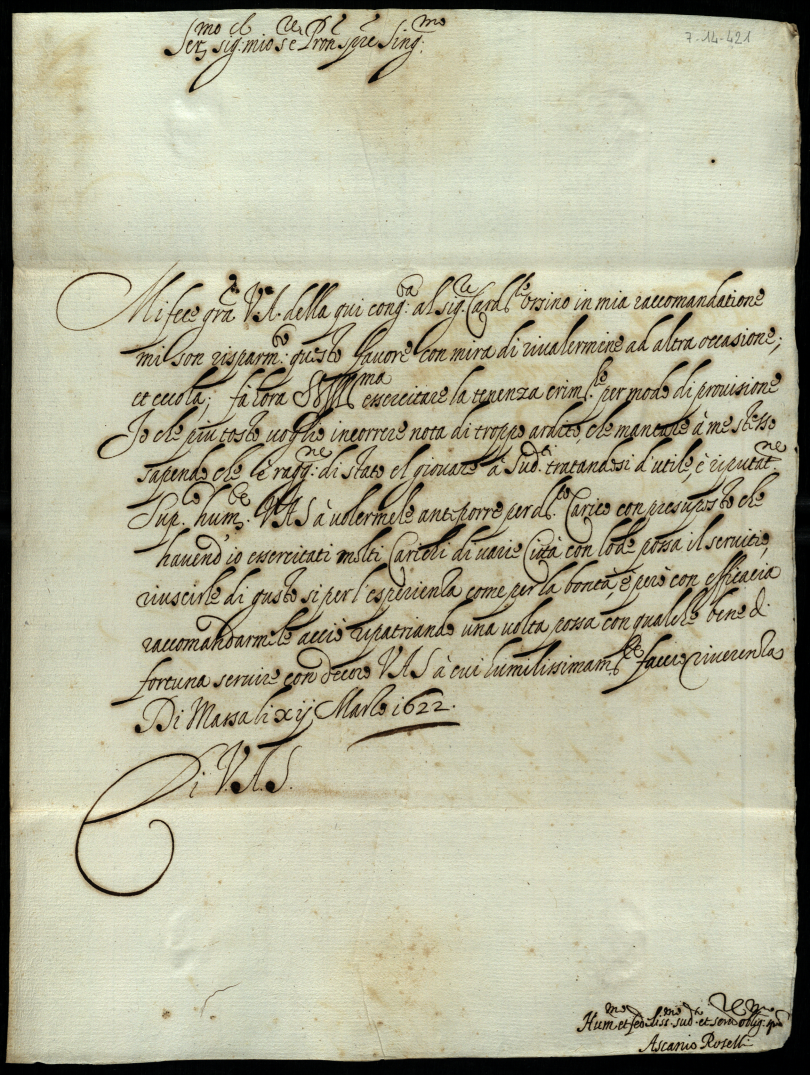 Ser.mo sig.re mio e Pron sing.mo
7-14-421
Mi fece gra V.A. della qui cong.ta al sig.re Card.le Orsino in mia raccomandatione
mi son risparm.to questo favore con mira di rivalermene ad altra occasione;
et eccola; fà lora essercitare la tenenza crim.le per modo di provisione
Io che piu tosto voglio incorrere nota di troppo ardito, che mancare à me stesso
sapendo che l'è ragg.ne di stato el giovare à sud.ti trattandosi d'utile, è riputat.ne
Sup.co hum.te V.A.S. à volermele anteporre per d.to Carico con presuposto che
havend'io essercitati molti Carichi di varie Città con lode possa il servitio,
riuscirle di gusto si per l'esperienza come per la bontà, è però con efficacia
raccomandarmele acciò ripatriando una volta possa con qualche bene d.
fortuna servire con decoro V.A.S. à cui humilissimam.te faccio riverenza
Di Massa li xij Marzo 1622.
Di V.A.S.
Hum.mo et fedeliss.mo sud.to et ser.re oblig.mo
Ascanio Roselli